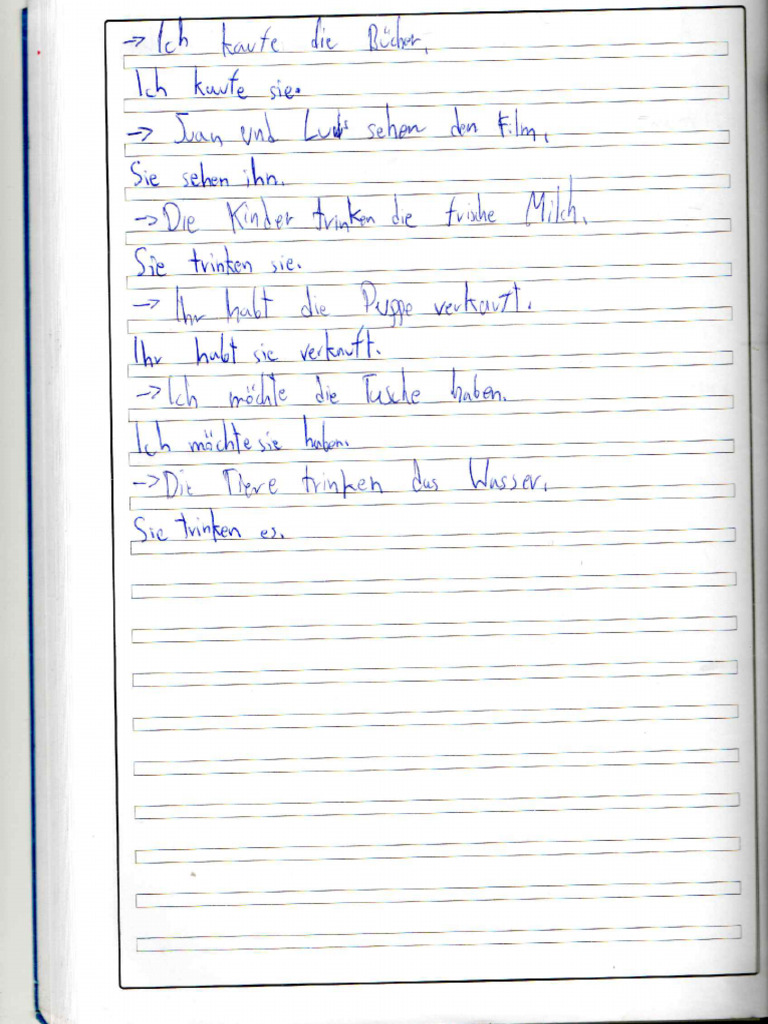 → Ich kaufe die Bücher.
Ich kaufe sie.
→ Juan und Luis sehen den Film.
Sie sehen ihn.
→ Die Kinder trinken die frische Milch.
Sie trinken sie.
→ Ihr habt die Puppe verkauft.
Ihr habt sie verkauft.
→ Ich möchte die Tasche haben.
Ich möchte sie haben.
→ Die Tiere trinken das Wasser.
Sie trinken es.